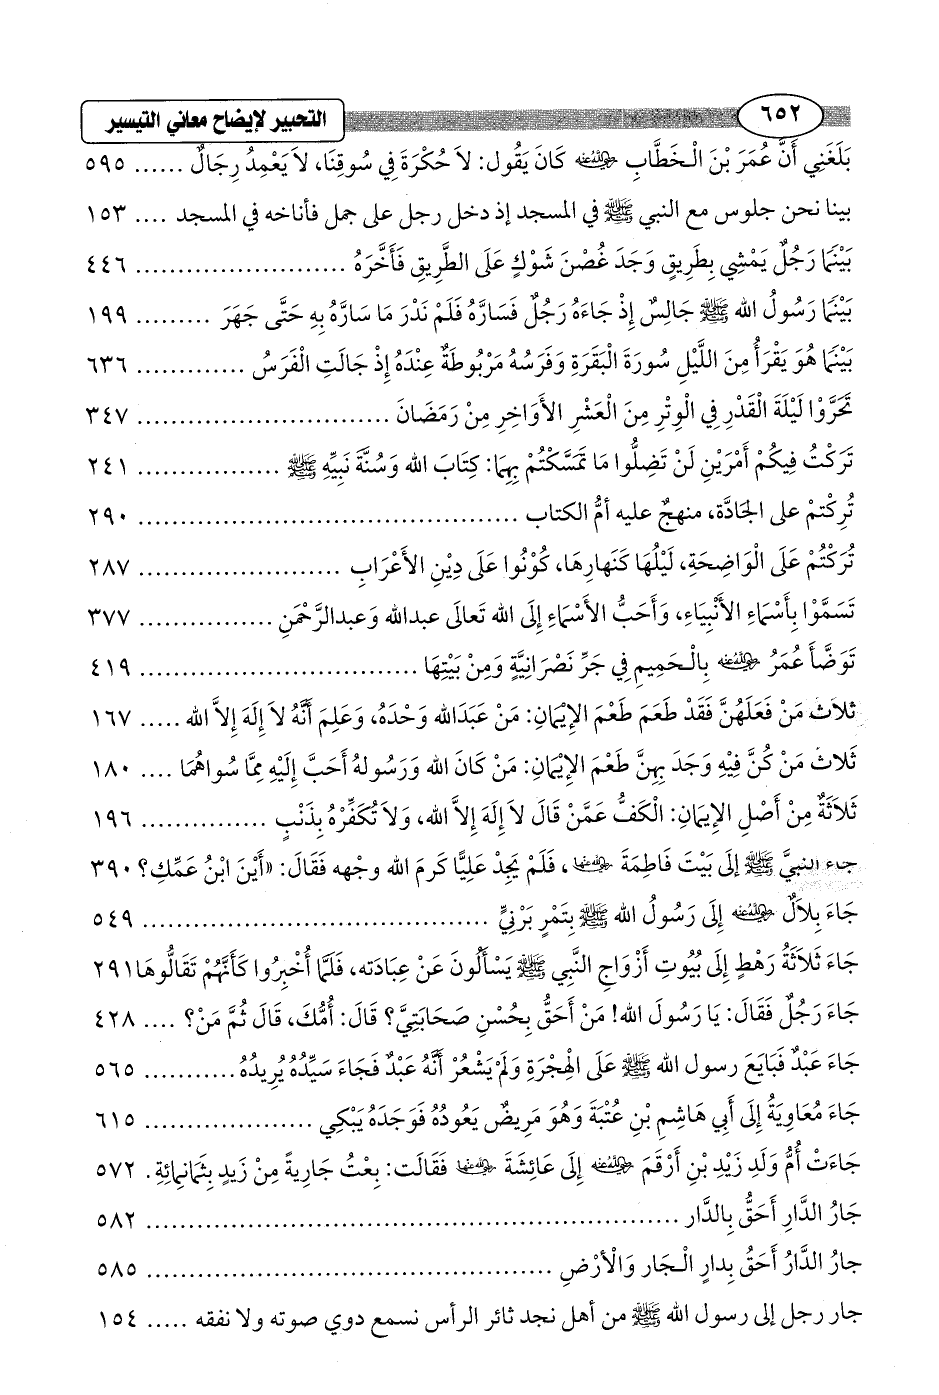 ٦٥٢ التحبير لإيضاح معاني التيسير
بَلَغَنِي أَنَّ عُمَرَ بْنَ الْـخَطَّابِ رضي الله عنه كَانَ يَقُول: لاَ حُكْرَةَ فِي سُوقِنَا، لاَ يَعْمِدُ رِجَالٌ ...... ٥٩٥
بينا نحن جلوس مع النبي ﷺ في المسجد إذ دخل رجل على جمل فأناخه في المسجد .... ١٥٣
بَيْنَمَا رَجُلٌ يَمْشِي بِطَرِيقٍ وَجَدَ غُصْنَ شَوْكٍ عَلَى الطَّرِيقِ فَأَخَّرَهُ ........................ ٤٤٦
بَيْنَمَا رَسُولُ الله ﷺ جَالِسٌ إِذْ جَاءَهُ رَجُلٌ فَسَارَّهُ فَلَمْ نَدْرِ مَا سَارَّهُ بِهِ حَتَّى جَهَرَ ......... ١٩٩
بَيْنَمَا هُوَ يَقْرَأُ مِنَ اللَّيْلِ سُورَةَ الْبَقَرَةِ وَفَرَسُهُ مَرْبُوطَةٌ عِنْدَهُ إِذْ جَالَتِ الْفَرَسُ ............. ٦٣٦
تَحَرَّوْا لَيْلَةَ الْقَدْرِ فِي الْوِتْرِ مِنَ الْعَشْرِ الأَوَاخِرِ مِنْ رَمَضَانَ ............................. ٣٤٧
تَرَكْتُ فِيكُمْ أَمْرَيْنِ لَنْ تَضِلُّوا مَا تَمَسَّكْتُمْ بِهِمَا: كِتَابَ الله وَسُنَّةَ نَبِيِّهِ ﷺ ................ ٢٤١
تُرِكْتمْ على الجَادَّة، منهجٌ عليه أمُّ الكتاب ........................................... ٢٩٠
تُرَكْتُمْ عَلَى الْوَاضِحَةِ، لَيْلُهَا كَنَهارِهَا، كُونُوا عَلَى دِيْنِ الأَعْرَابِ ....................... ٢٨٧
تَسَمَّوْا بِأَسْمَاءِ الأَنْبِيَاءِ، وَأَحَبُّ الأَسْمَاءِ إِلَى الله تَعَالَى عبدالله وَعبدالرَّحْمَنِ ............... ٣٧٧
تَوَضَّأَ عُمَرُ رضي الله عنه بِالْـحَمِيمِ فِي جَرِّ نَصْرَانِيَّةٍ وَمِنْ بَيْتِهَا ................................ ٤١٩
ثلاَث مَنْ فَعَلَهُنَّ فَقَدْ طَعَمَ طَعْمَ الإِيْمَانِ: مَنْ عَبَدَالله وَحْدَهُ، وَعَلِمَ أَنَّهُ لاَ إِلَهَ إِلاَّ الله ..... ١٦٧
ثَلاَث مَنْ كُنَّ فِيْهِ وَجَدَ بِهِنَّ طَعْمَ الإِيْمَانِ: مَنْ كَانَ الله وَرَسُولهُ أَحَبَّ إِلَيْهِ مِمَّا سُواهُمَا .... ١٨٠
ثَلاَثَةٌ مِنْ أَصْلِ الإِيمَانِ: الْكَفُّ عَمَّنْ قَالَ لاَ إِلَهَ إِلاَّ الله، وَلاَ تُكَفِّرْهُ بِذَنْبٍ .............. ١٩٦
جَاءَ النبيَّ ﷺ إِلَى بَيْتَ فَاطِمَةَ رضي الله عنها، فَلَمْ يَجِدْ عَلِيًّا كَرمَ الله وجهه فَقَالَ: «أَيْنَ ابْنُ عَمِّكِ؟ ٣٩٠
جَاءَ بِلاَلٌ رضي الله عنه إِلَى رَسُولُ الله ﷺ بِتَمْرٍ بَرْنِيٍّ ...................................... ٥٤٩
جَاءَ ثَلاَثَةُ رَهْطٍ إِلَى بُيُوتِ أَزْوَاجِ النَّبِي ﷺ يَسْأَلُونَ عَنْ عِبَادَته، فَلَمَّا أُخْبِرُوا كَأَنَّهُمْ تَقَالُّوهَا ٢٩١
جَاءَ رَجُلٌ فَقَالَ: يَا رَسُولَ الله! مَنْ أَحَقُّ بِحُسْنِ صَحَابَتِيَّ؟ قَالَ: أُمُّكَ، قَالَ ثُمَّ مَنْ؟ .... ٤٢٨
جاءَ عَبْدٌ فَبَايَعَ رسول الله ﷺ عَلَى الْهِجْرَةِ وَلَمْ يَشْعُرْ أَنَّهُ عَبْدٌ فَجَاءَ سَيِّدُهُ يُرِيدُهُ .......... ٥٦٥
جَاءَ مُعَاوِيَةُ إِلَى أَبِي هَاشِمٍ بْنِ عُتْبَةَ وَهُوَ مَرِيضٌ يَعُودُهُ فَوَجَدَهُ يَبْكِي ................... ٦١٥
جَاءَتْ أُمُّ وَلَدِ زَيْدِ بْنِ أَرْقَمَ رضي الله عنه إِلَى عَائِشَةَ رضي الله عنها فَقَالَت: بِعْتُ جَارِيةً مِنْ زَيدٍ بِثَمَانِمائِةِ. ٥٧٢
جَارُ الدَّارِ أَحَقُّ بِالدَّار ............................................................ ٥٨٢
جارُ الدَّارُ أَحَقُ بِدارِ الْـجَار وَالْأَرْضِ .............................................. ٥٨٥
جار رجل إلى رسول الله ﷺ من أهل نجد ثائر الرأس نسمع دوي صوته ولا نفقه ..... ١٥٤